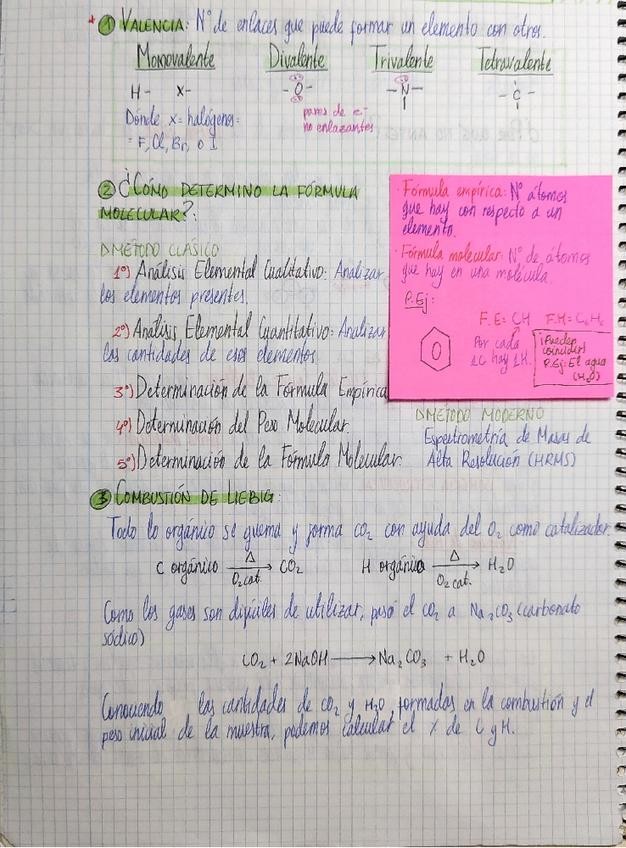 * ① VALENCIA: Nº de enlaces que puede formar un elemento con otros.
Monovalente Divalente Trivalente Tetravalente
H- X- -O- -N- -C-
Donde x= halógenos=
= F, Cl, Br, o I
pares de e-
no enlazantes
② ¿CÓMO DETERMINO LA FÓRMULA
MOLECULAR?:
· Fórmula empírica: Nº átomos
que hay con respecto a un
elemento.
· Fórmula molecular: Nº de átomos
que hay en una molécula.
P.Ej:
F.E= CH F.M= C₆H₆
Por cada
1C hay 1H.
¡Pueden
coincidir!
P.Ej: El agua
(H₂O)
MÉTODO CLÁSICO
1º) Análisis Elemental Cualitativo: Analizar
los elementos presentes.
2º) Análisis Elemental Cuantitativo: Analizar
las cantidades de esos elementos
3º) Determinación de la Fórmula Empírica
4º) Determinación del Peso Molecular.
5º) Determinación de la Fórmula Molecular.
MÉTODO MODERNO
Espectrometría de Masas de
Alta Resolución (HRMS)
③ COMBUSTIÓN DE LIEBIG:
Todo lo orgánico se quema y forma CO₂ con ayuda del O₂ como catalizador.
C orgánico Δ → O₂ cat. CO₂ H orgánico Δ → O₂ cat. H₂O
Como los gases son difíciles de utilizar, pasó el CO₂ a Na₂CO₃ (carbonato
sódico)
CO₂ + 2NaOH → Na₂CO₃ + H₂O
Conociendo las cantidades de CO₂ y H₂O formadas en la combustión y el
peso inicial de la muestra, podemos calcular el % de C y H.